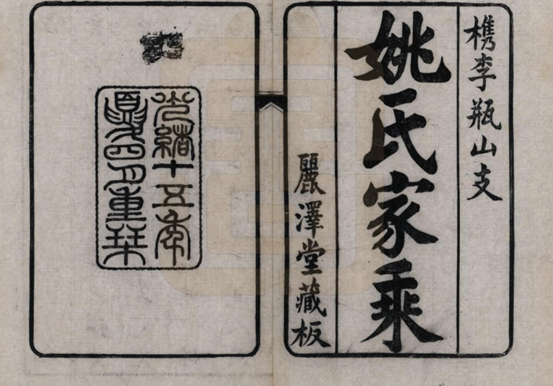 檇李瓶山支
姚氏家乘
麗澤堂藏板
光緒十五年
夏四月重栞